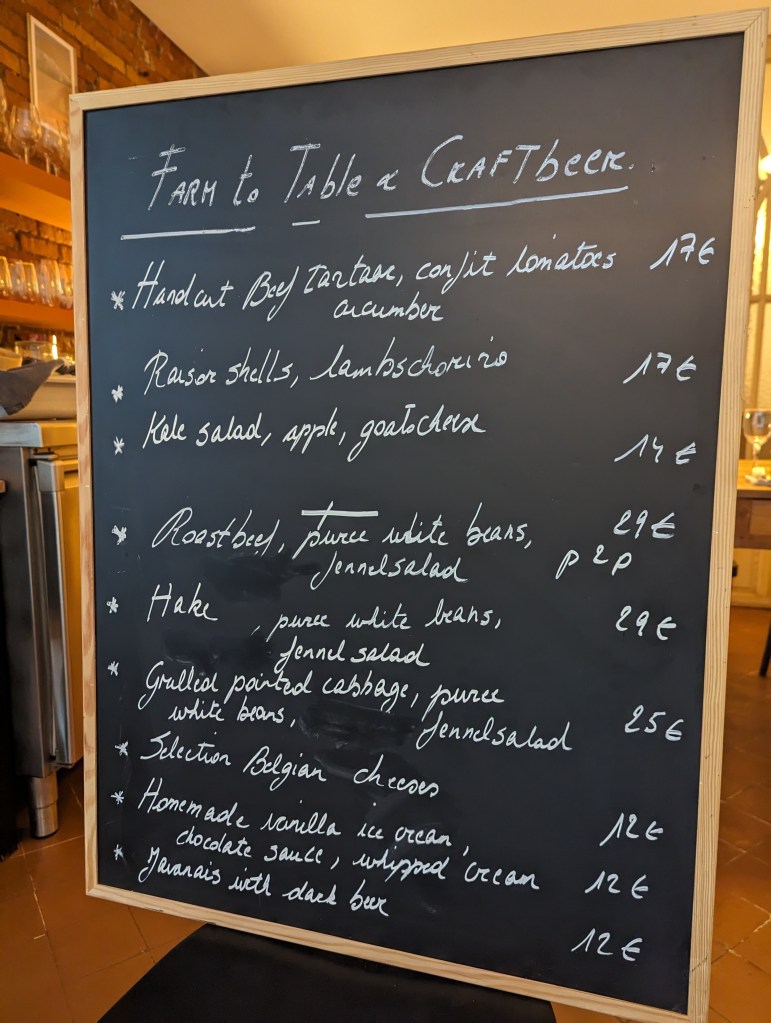 FARM to TABle & CRAFTbeer.
* Handcut Beef tartaar, confit tomatoes 17€
cucumber
* Raisor shells, lambschorizo 17€
* Kale salad, apple, goatscheese 14€
* Roastbeef, puree white beans, 29€
fennelsalad p2p
* Hake , puree white beans, 29€
fennel salad
* Grilled pointed cabbage, puree
white beans, fennelsalad 25€
* Selection Belgian cheeses 12€
* Homemade vanilla ice cream,
chocolate sauce, whipped cream 12€
* Javanais with dark beer 12€